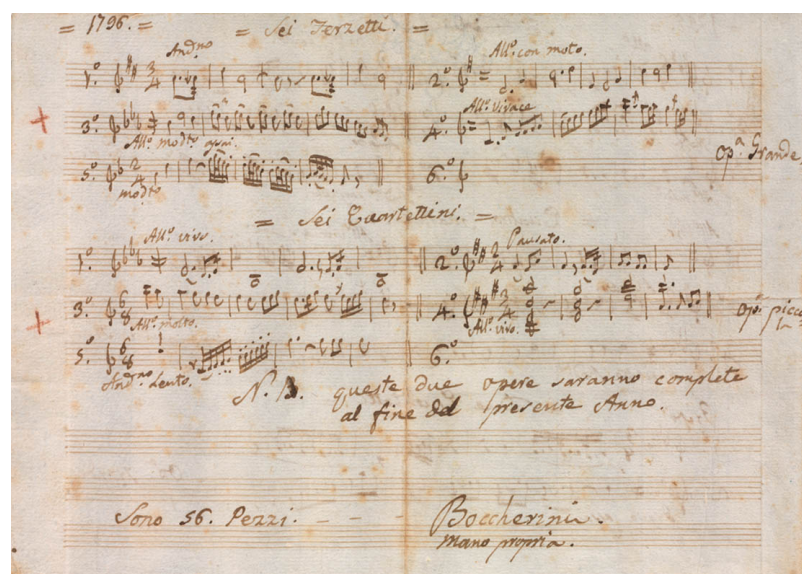 = 1796. = = Sei Terzetti. =
1.º And.no 2.º All.º con moto.
3.º All.º modto assai. 4.º All.º vivace
op.ª Grande
5.º modto 6.º
= Sei Quartettini. =
1.º All.º vivo. 2.º Pausato.
3.º All.º molto. 4.º All.º vivo.
5.º And.no Lento. 6.º
N. B. queste due opere saranno complete
al fine del presente Anno.
Sono 56. Pezzi. - - - Boccherini.
mano propria.